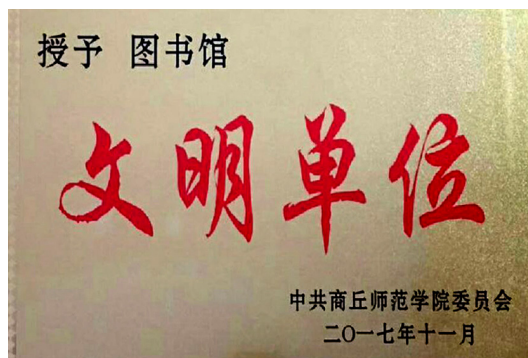 授予 图书馆
文明单位
中共商丘师范学院委员会
二〇一七年十一月